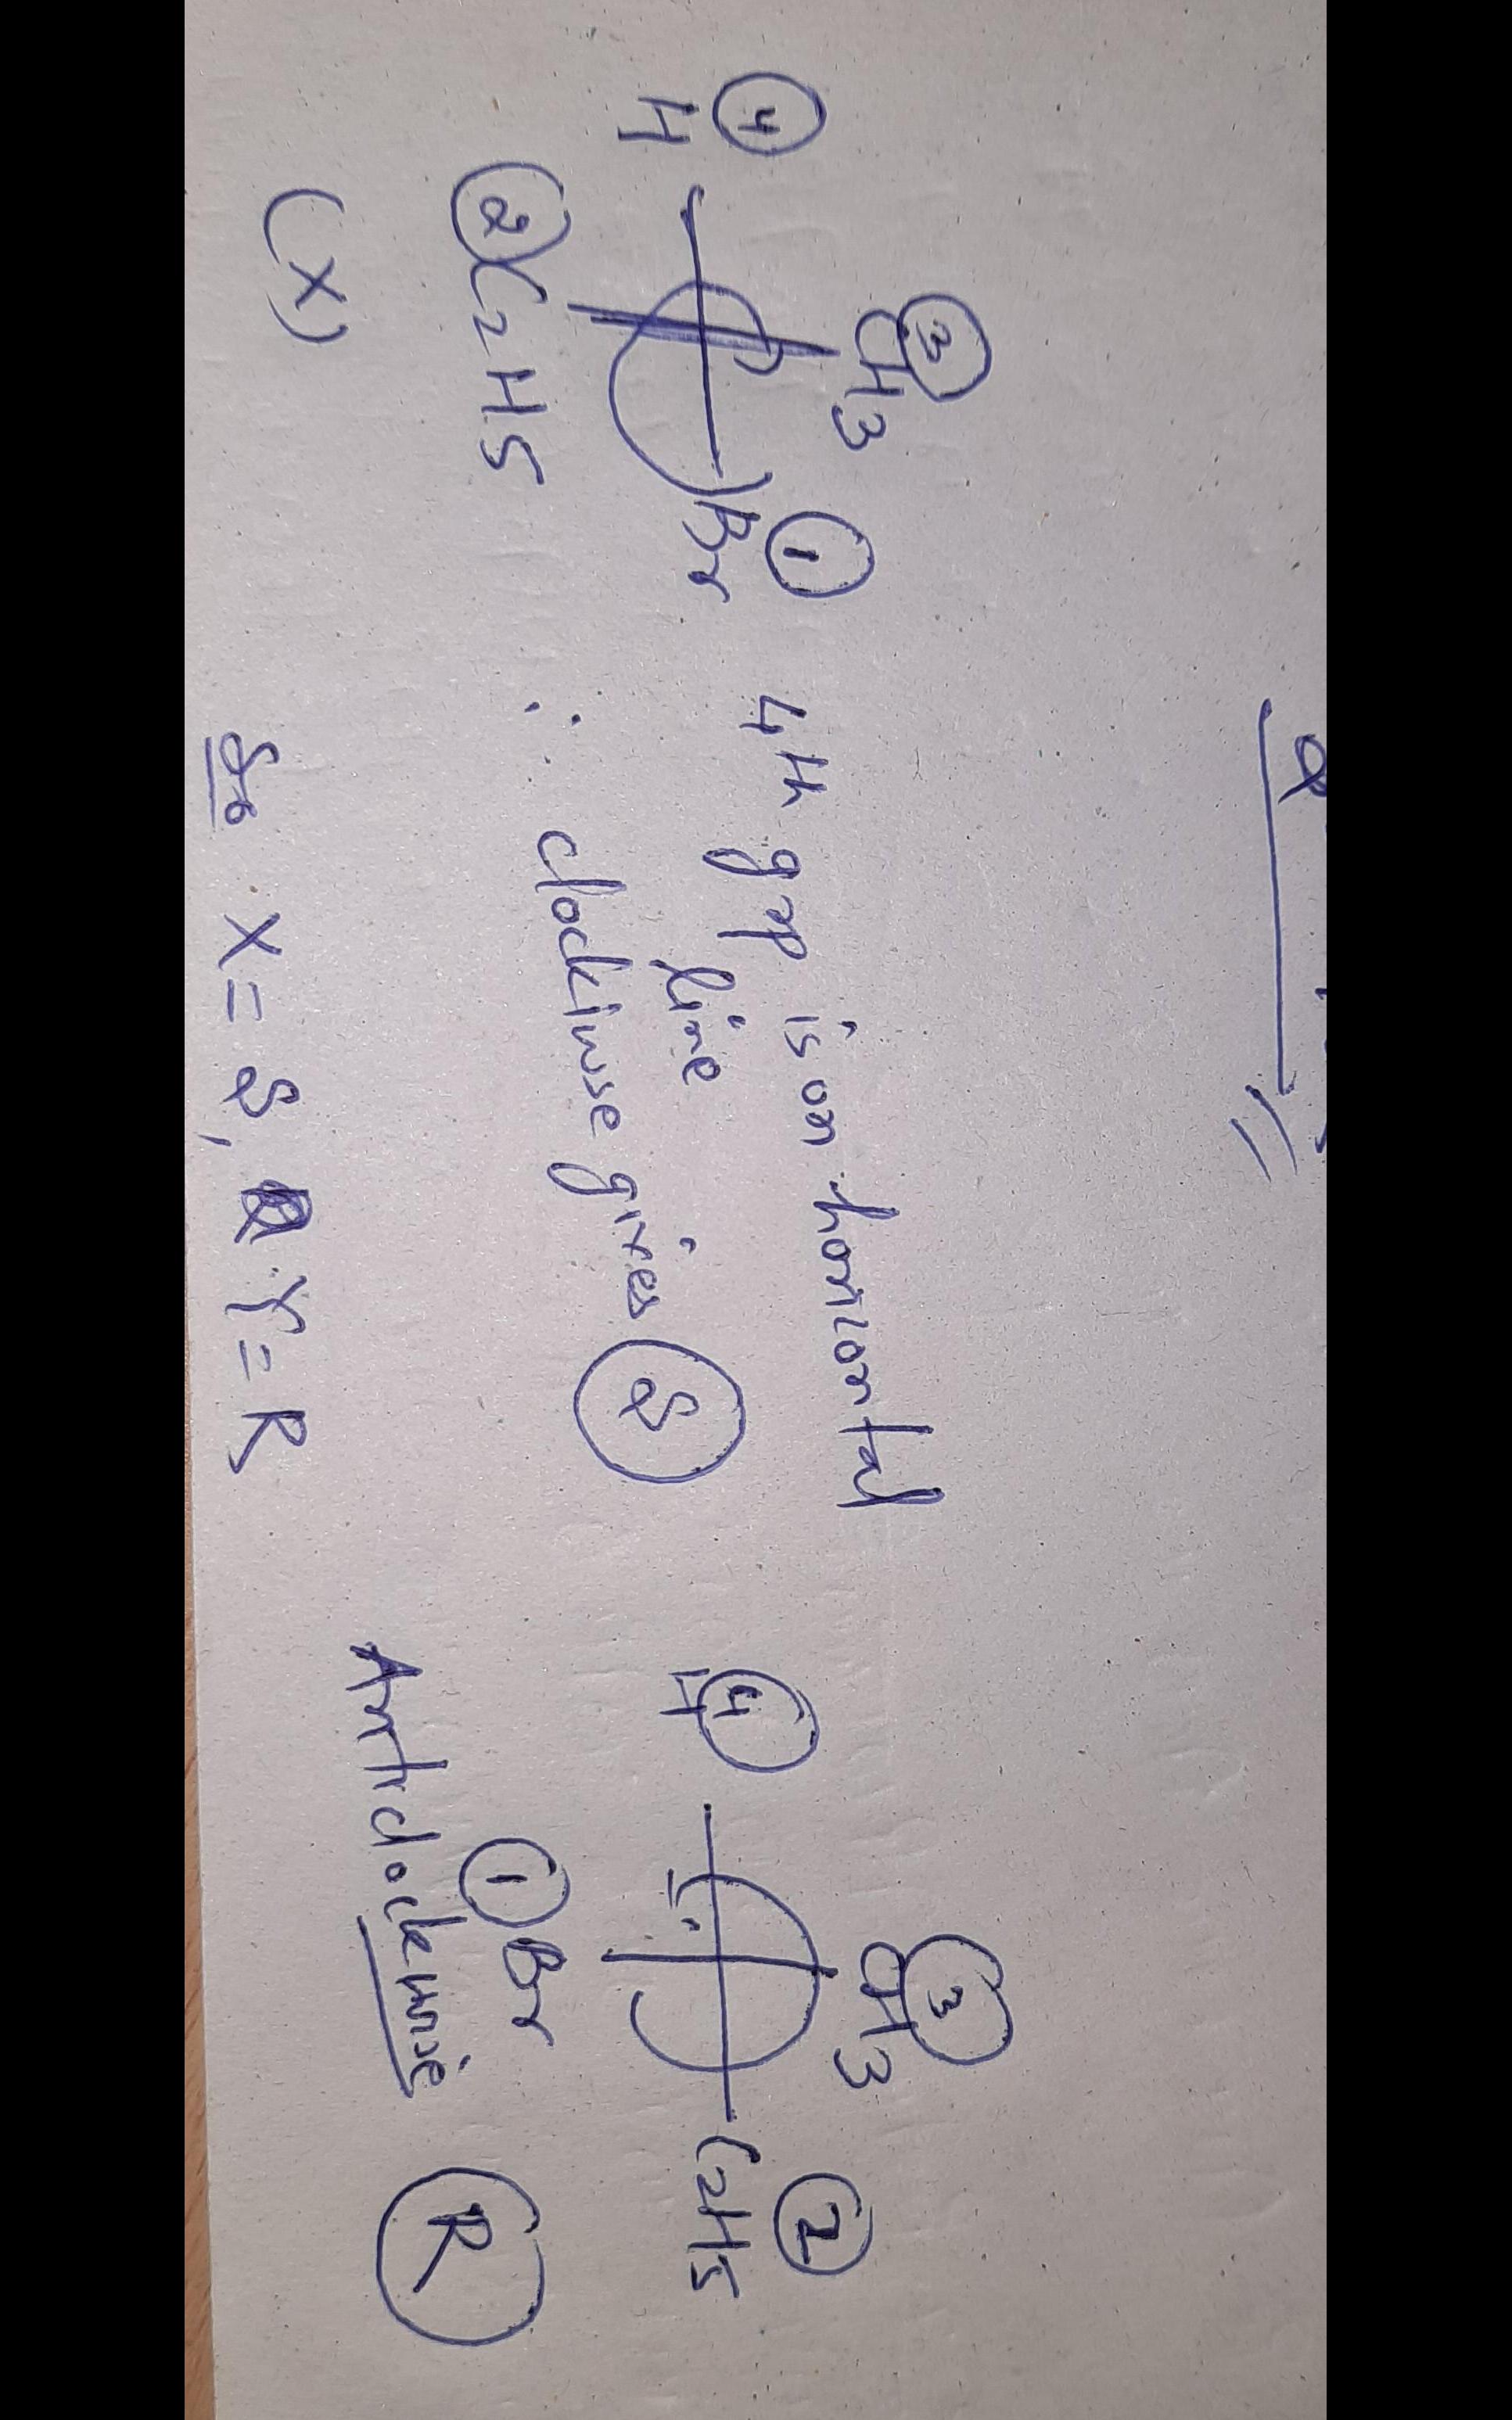 ③ CH3
④ H
Br ①
② C2H5
(X)
4th grp is on horizontal
line
∴ clockiwse gives Ⓢ
So X = S, Y = R
③ CH3
④ H
C2H5 ②
① Br
Anticlockwise Ⓡ